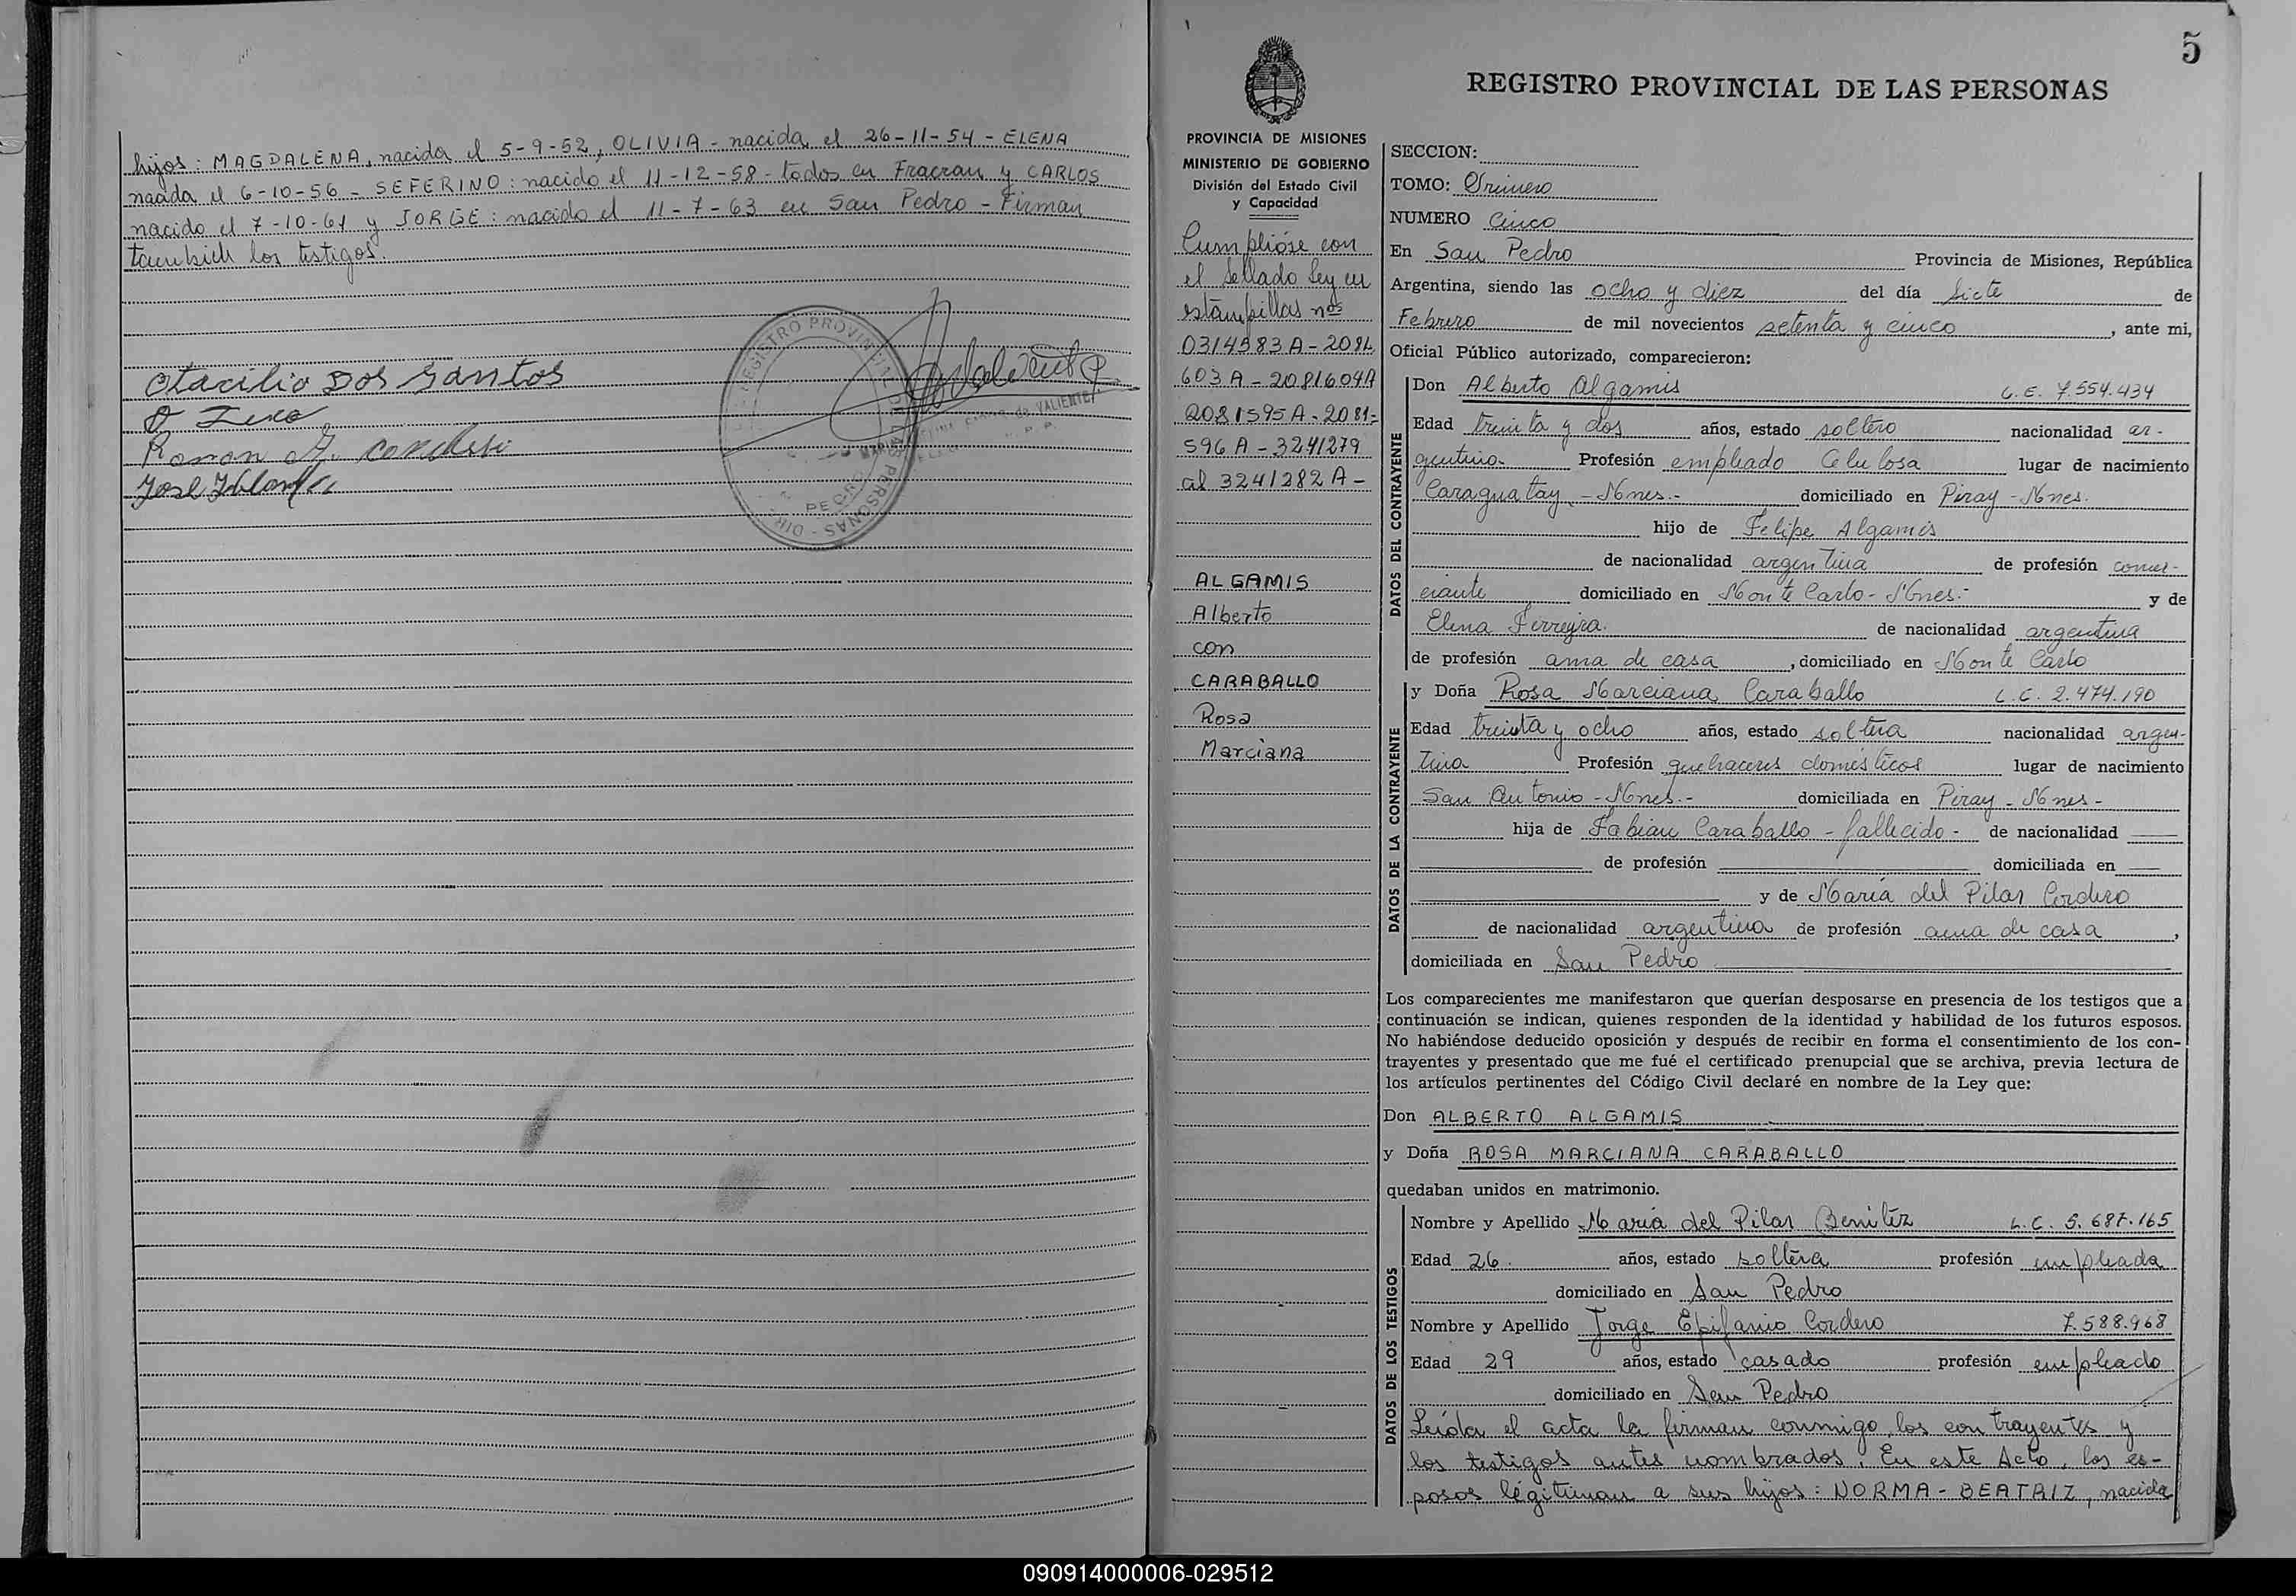 hijos: MAGDALENA, nacida el 5-9-52, OLIVIA - nacida el 26-11-54 - ELENA
nacida el 6-10-56 - SEFERINO: nacido el 11-12-58 - todos en Fracran y CARLOS
nacido el 7-10-61 y JORGE: nacido el 11-7-63 en San Pedro - Firman
tambien los testigos.
Otacilio Dos Santos
Ramon
José
REGISTRO PROVINCIAL
PERSONAS - DIR.
de VALIENTE
5
REGISTRO PROVINCIAL DE LAS PERSONAS
PROVINCIA DE MISIONES
MINISTERIO DE GOBIERNO
División del Estado Civil
y Capacidad
Cumplióse con
el Sellado Ley en
estampillas nos
0314583A-2081
603A-2081604A
2081595A-2081=
596A-3241279
al 3241282A-
ALGAMIS
Alberto
con
CARABALLO
Rosa
Marciana
SECCION:
TOMO: Primero
NUMERO Cinco
En San Pedro Provincia de Misiones, República
Argentina, siendo las ocho y diez del día Siete de
Febrero de mil novecientos setenta y cinco, ante mi,
Oficial Público autorizado, comparecieron:
DATOS DEL CONTRAYENTE
Don Alberto Algamis L.E. 7.554.434
Edad treinta y dos años, estado soltero nacionalidad ar-
gentino- Profesión empleado Celulosa lugar de nacimiento
Caraguatay - Mnes.- domiciliado en Piray - Mnes.
hijo de Felipe Algamis
de nacionalidad argentina de profesión comer-
ciante domiciliado en Monte Carlo - Mnes.- y de
Elena Ferreyra. de nacionalidad argentina
de profesión ama de casa, domiciliado en Monte Carlo
DATOS DE LA CONTRAYENTE
y Doña Rosa Marciana Caraballo L.C. 2.474.190
Edad treinta y ocho años, estado soltera nacionalidad argen-
tina Profesión quehaceres domésticos lugar de nacimiento
San Antonio - Mnes.- domiciliada en Piray - Mnes -
hija de Fabian Caraballo - fallecido - de nacionalidad
de profesión domiciliada en
y de María del Pilar Cordero
de nacionalidad argentina de profesión ama de casa,
domiciliada en San Pedro
Los comparecientes me manifestaron que querían desposarse en presencia de los testigos que a
continuación se indican, quienes responden de la identidad y habilidad de los futuros esposos.
No habiéndose deducido oposición y después de recibir en forma el consentimiento de los con-
trayentes y presentado que me fué el certificado prenupcial que se archiva, previa lectura de
los artículos pertinentes del Código Civil declaré en nombre de la Ley que:
Don ALBERTO ALGAMIS
y Doña ROSA MARCIANA CARABALLO
quedaban unidos en matrimonio.
DATOS DE LOS TESTIGOS
Nombre y Apellido María del Pilar Benitez L.C. 5.687.165
Edad 26. años, estado soltera profesión empleada
domiciliado en San Pedro
Nombre y Apellido Jorge Epifanio Cordero 7.588.968
Edad 29 años, estado casado profesión empleado
domiciliado en San Pedro
Leída el acta la firman conmigo, los contrayentes y
los testigos antes nombrados. En este Acto, los es-
posos legitiman a sus hijos: NORMA-BEATRIZ, nacida
090914000006-029512